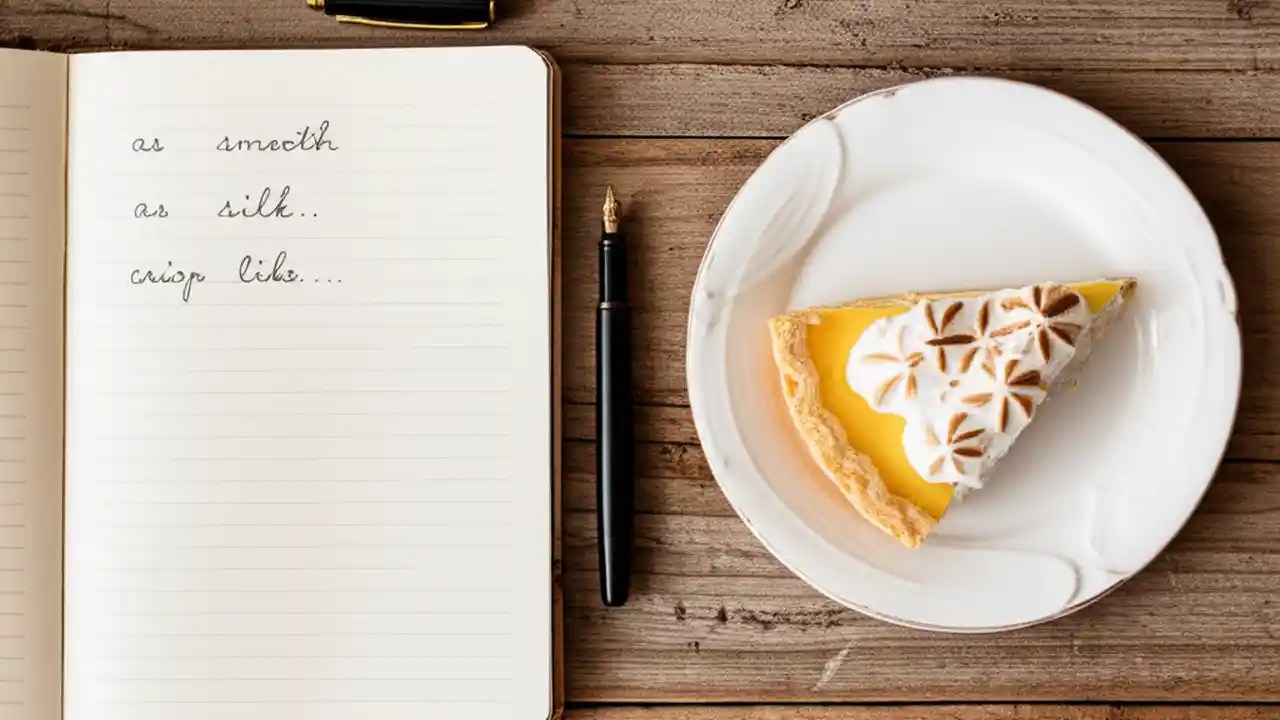 as smooth
as silk..
crisp like....